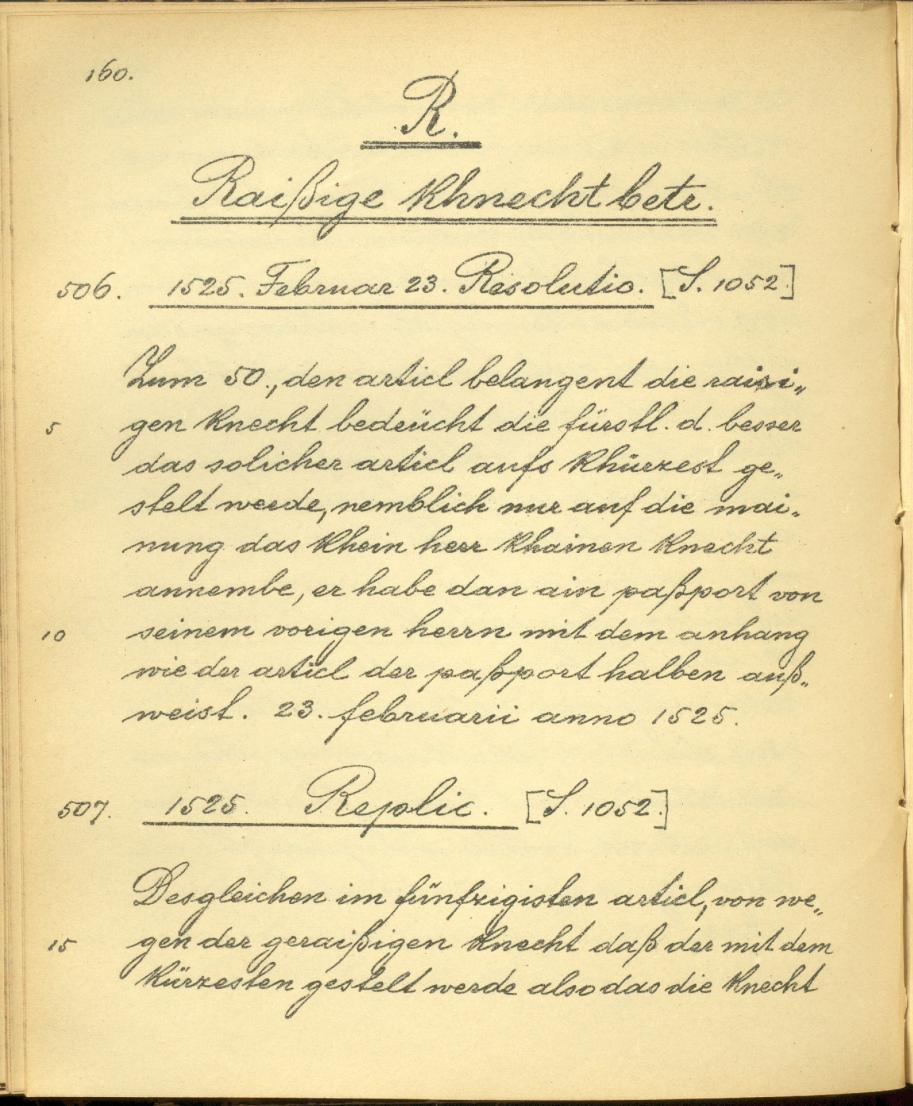 160.
R.
Raißige Khnecht betr.
506. 1525. Februar 23. Resolutio. [S. 1052.]
Zum 50., den articl belangent die raisi„
5 gen Knecht bedeücht die fürstl. d. besser
das solicher articl aufs Khürzest ge„
stelt werde, nemblich nur auf die mai„
nung das Khein herr Khainen Knecht
annembe, er habe dan ain paßport von
10 seinem vorigen herrn mit dem anhang
wie der articl der paßport halben auß„
weist. 23. februarii anno 1525.
507. 1525. Replic. [S. 1052.]
Desgleichen im fünfzigisten articl, von we„
15 gen der geraißigen Knecht daß der mit dem
Kürzesten gestelt werde also das die Knecht